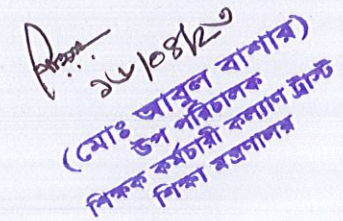 ১৮/০৪/২৩
(মোঃ আবুল বাশার)
উপ পরিচালক
শিক্ষক কর্মচারী কল্যাণ ট্রাস্ট
শিক্ষা মন্ত্রণালয়